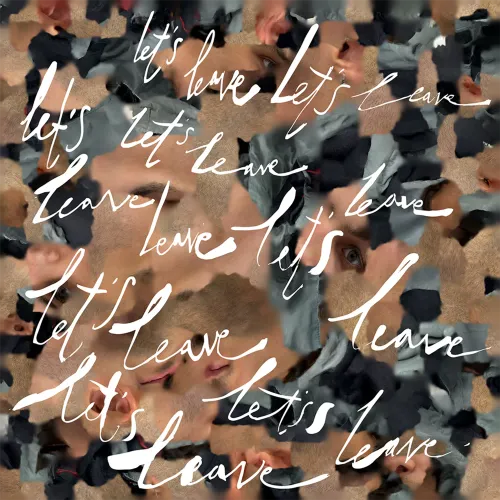 let's leave Let's leave
let's let's leave
leave leave let's leave
let's leave leave
let's leave let's leave